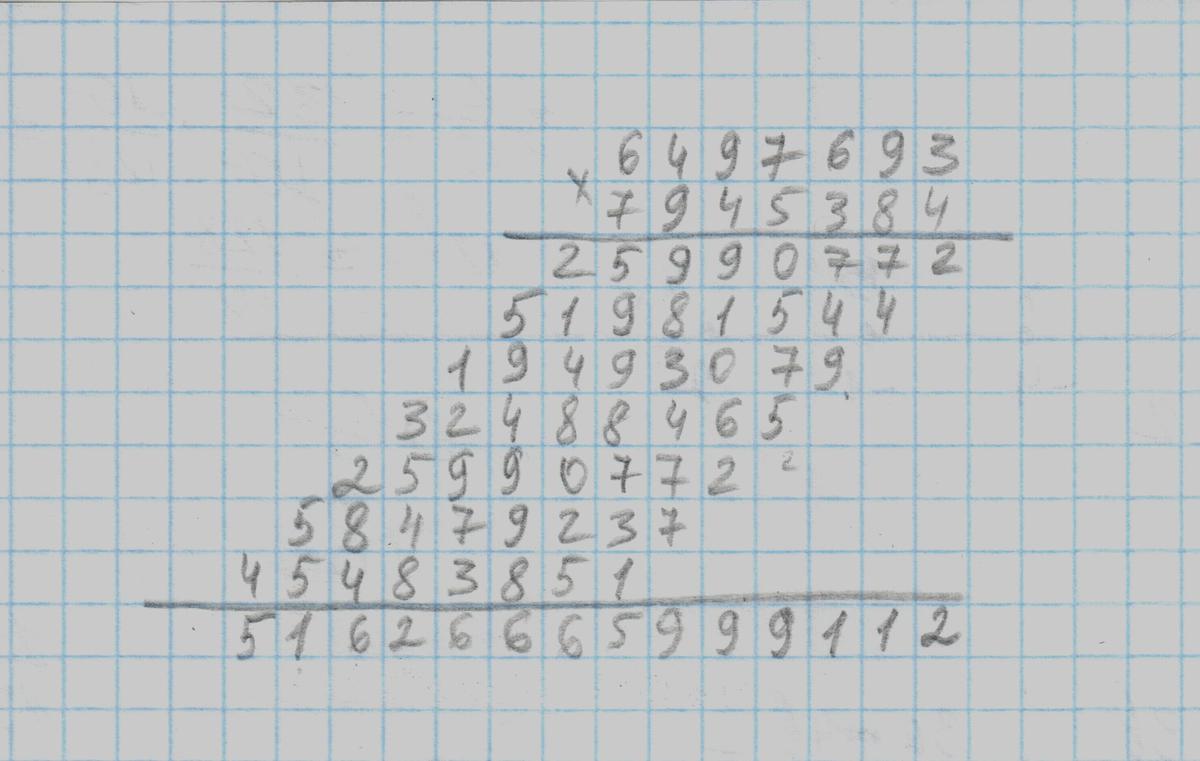 6497693
× 7945384
25990772
51981544
19493079
32488465
25990772 2
58479237
45483851
51626665999112